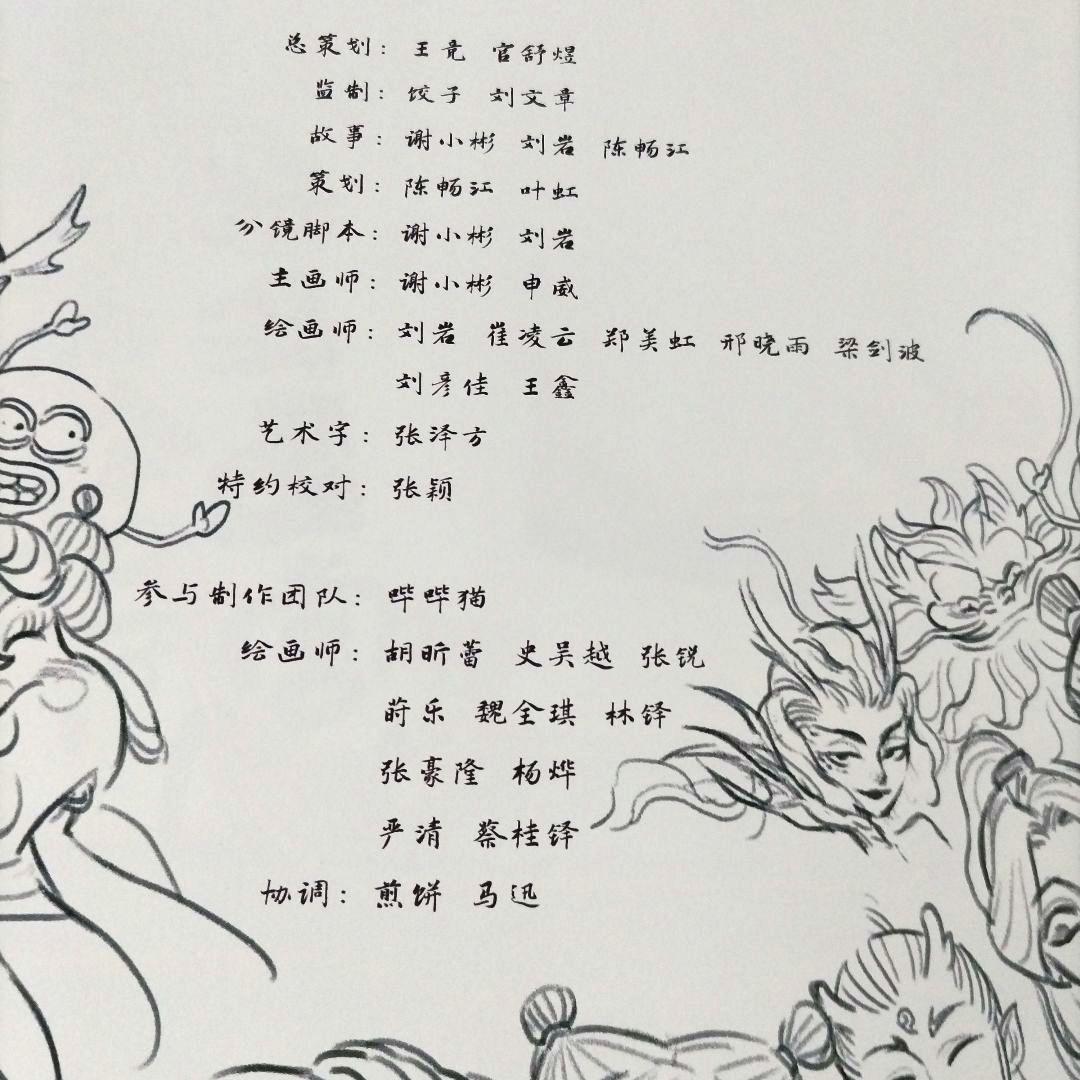 总策划：王竞 官舒煜
监制：饺子 刘文章
故事：谢小彬 刘岩 陈畅江
策划：陈畅江 叶虹
分镜脚本：谢小彬 刘岩
主画师：谢小彬 申威
绘画师：刘岩 崔凌云 郑美虹 邢晓雨 梁剑波
刘彦佳 王鑫
艺术字：张泽方
特约校对：张颖
参与制作团队：哔哔猫
绘画师：胡昕蕾 史吴越 张锐
莳乐 魏全琪 林铎
张豪隆 杨烨
严清 蔡桂铎
协调：煎饼 马迅